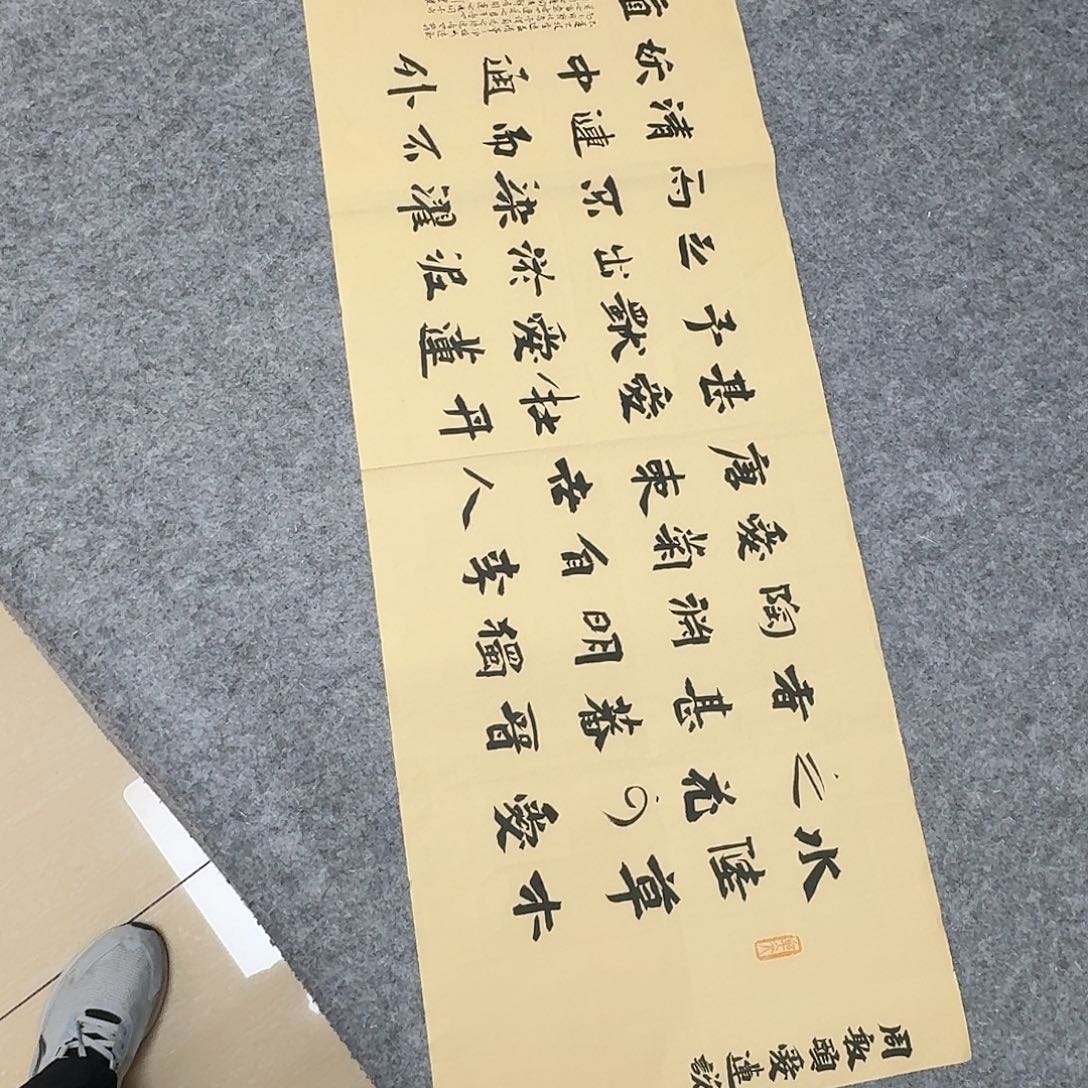 周敦頤愛蓮說
水陸草木
之花可愛
者甚蕃晉
陶淵明獨
愛菊自李
唐來世人
甚愛牡丹
予獨愛蓮
之出淤泥
而不染濯
清漣而不
妖中通外
直